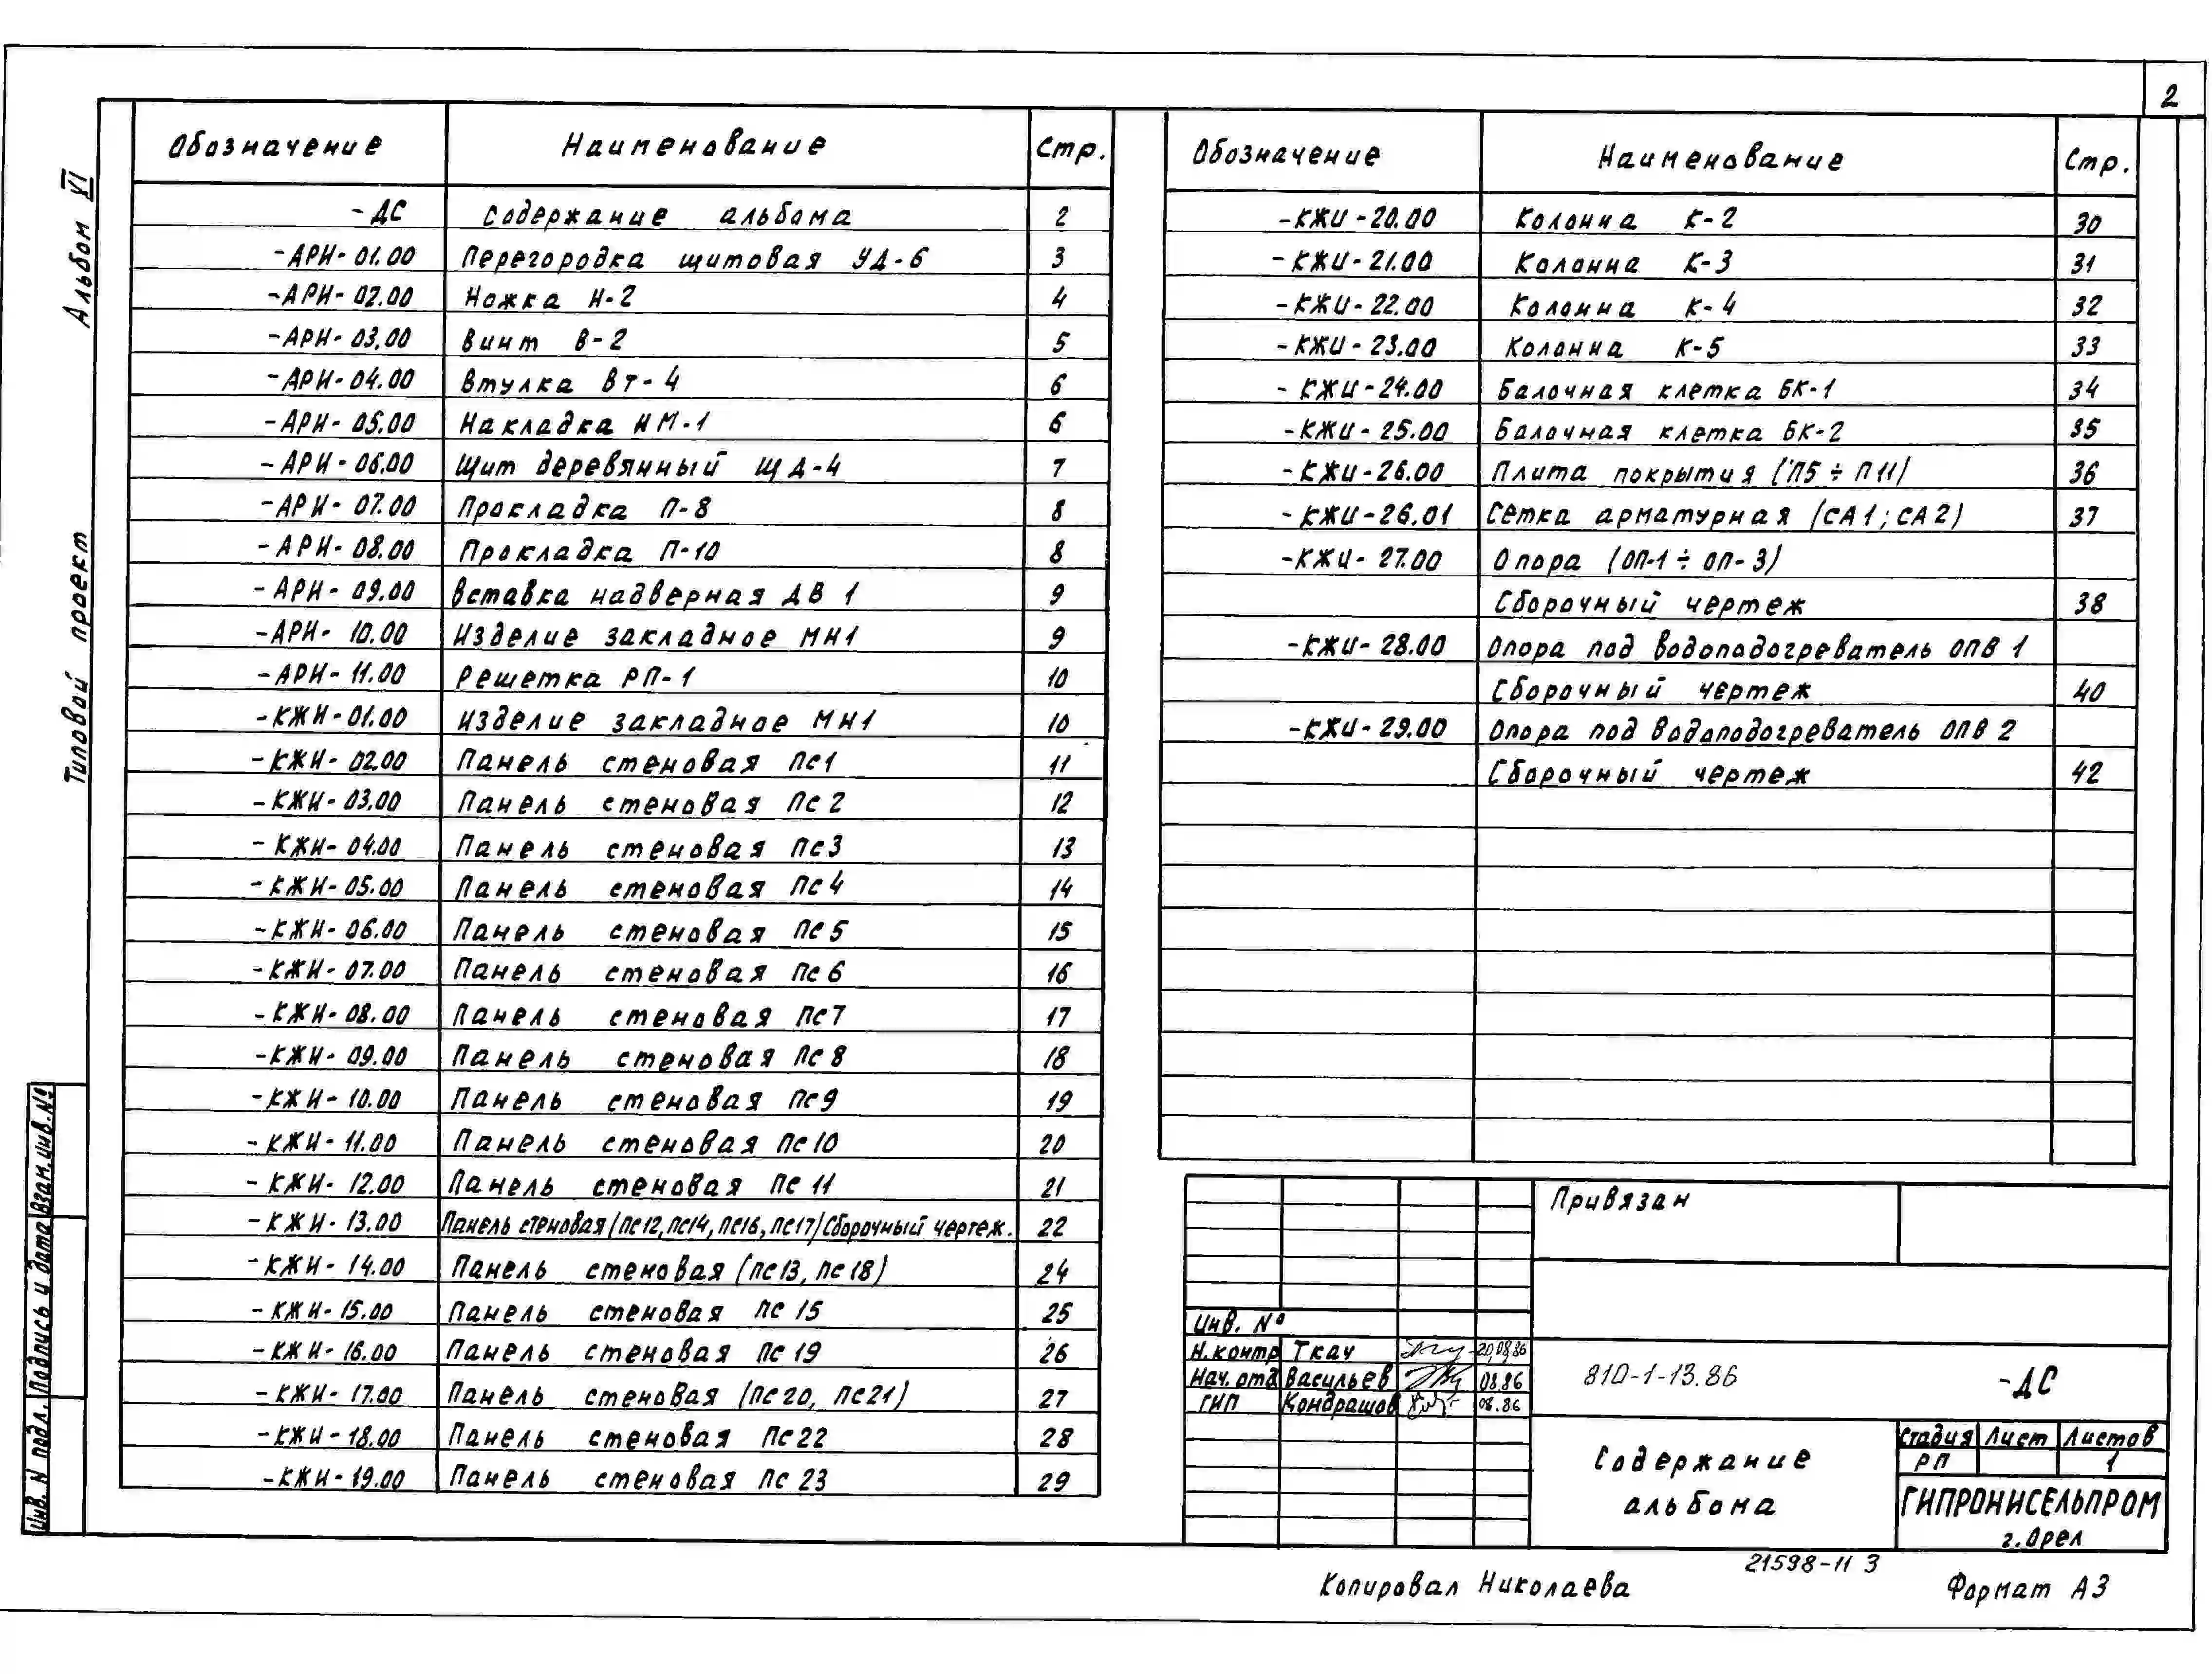 2
Альбом VI
Типовой проект
Обозначение Наименование Стр.
-ДС Содержание альбома 2
-АРИ-01.00 Перегородка щитовая УД-6 3
-АРИ-02.00 Ножка Н-2 4
-АРИ-03.00 Винт В-2 5
-АРИ-04.00 Втулка ВТ-4 6
-АРИ-05.00 Накладка НМ-1 6
-АРИ-06.00 Щит деревянный ЩД-4 7
-АРИ-07.00 Прокладка П-8 8
-АРИ-08.00 Прокладка П-10 8
-АРИ-09.00 Вставка надверная ДВ 1 9
-АРИ-10.00 Изделие закладное МН1 9
-АРИ-11.00 Решетка РП-1 10
-КЖИ-01.00 Изделие закладное МН1 10
-КЖИ-02.00 Панель стеновая ПС1 11
-КЖИ-03.00 Панель стеновая ПС 2 12
-КЖИ-04.00 Панель стеновая ПС3 13
-КЖИ-05.00 Панель стеновая ПС 4 14
-КЖИ-06.00 Панель стеновая ПС 5 15
-КЖИ-07.00 Панель стеновая ПС 6 16
-КЖИ-08.00 Панель стеновая ПС7 17
-КЖИ-09.00 Панель стеновая ПС 8 18
-КЖИ-10.00 Панель стеновая ПС9 19
-КЖИ-11.00 Панель стеновая ПС 10 20
-КЖИ-12.00 Панель стеновая ПС 11 21
-КЖИ-13.00 Панель стеновая (ПС12, ПС14, ПС16, ПС17) Сборочный чертеж. 22
-КЖИ-14.00 Панель стеновая (ПС13, ПС18) 24
-КЖИ-15.00 Панель стеновая ПС 15 25
-КЖИ-16.00 Панель стеновая ПС 19 26
-КЖИ-17.00 Панель стеновая (ПС20, ПС21) 27
-КЖИ-18.00 Панель стеновая ПС22 28
-КЖИ-19.00 Панель стеновая ПС 23 29
Обозначение Наименование Стр.
-КЖИ-20.00 Колонна К-2 30
-КЖИ-21.00 Колонна К-3 31
-КЖИ-22.00 Колонна К-4 32
-КЖИ-23.00 Колонна К-5 33
-КЖИ-24.00 Балочная клетка БК-1 34
-КЖИ-25.00 Балочная клетка БК-2 35
-КЖИ-26.00 Плита покрытия (П5÷П11) 36
-КЖИ-26.01 Сетка арматурная (СА1; СА2) 37
-КЖИ-27.00 Опора (ОП-1÷ОП-3)
Сборочный чертеж 38
-КЖИ-28.00 Опора под водоподогреватель ОПВ 1
Сборочный чертеж 40
-КЖИ-29.00 Опора под водоподогреватель ОПВ 2
Сборочный чертеж 42
Привязан
Инв. №
Н.контр Ткач 20.08.86
Нач. отд Васильев 08.86
ГИП Кондрашов 08.86
810-1-13.86 -ДС
Содержание
альбома
Стадия Лист Листов
РП 1
ГИПРОНИСЕЛЬПРОМ
г.Орел
21598-11 3
Копировал Николаева Формат А3
Взам.инв.№
Подпись и дата
Инв. N подл.